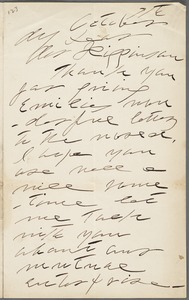 October
My Dear
Mr. Higginson
Thank you
for giving
Emily's won
derful letters
to the world.
I hope you
are well &
will some
time let
me talk
with you
about our
mutual